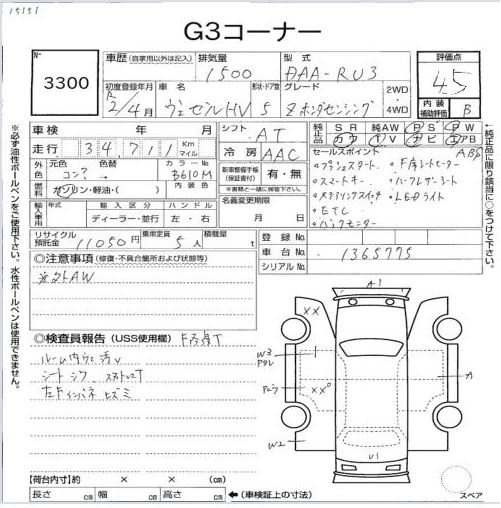 15151
G3コーナー
No
3300
車歴(自家用以外は記入)
排気量
1500
型式
DAA-RU3
評価点
4.5
内装補助評価 B
初度登録年月
R2/4月
車名
ヴェゼルHV
形状・ドア数
5
グレード
Zホンダセンシング
2WD
4WD
車検 年 月
走行 34711 Km マイル
シフト AT
冷房 AAC
純正品 SR 純AW PS PW
カワ ナビ エアB
ABS
外色 元色 色替 カラーNo
コン? B610M
燃料 ガソリン・軽油・( ) 内装色
新車整備手帳(保証書付) 有・無
※書類と一緒に保管して下さい。
名義変更期限
月 日
セールスポイント
プッシュスタート
スマートキー
ステアリングスイッチ
ETC
バックモニター
F席シートヒーター
ハーフレザーシート
LEDライト
輸入車用 年式 輸入区分 ハンドル
ディーラー・並行 左・右
リサイクル預託金 11050円 乗車定員 5人 積載量 t
登録No
車台No 1365775
シリアルNo
◎注意事項(修復・不具合箇所および状態等)
社外AW
◎検査員報告(USS使用欄)
※必ず油性ボールペンをご使用下さい。水性ボールペンは使用できません。
←純正品に限り該当に○をつけて下さい。
A1
XX
W3
XX
W2
U1
スペア
【荷台内寸】約 × × (cm)
長さ cm 幅 cm 高さ cm ←(車検証上の寸法)